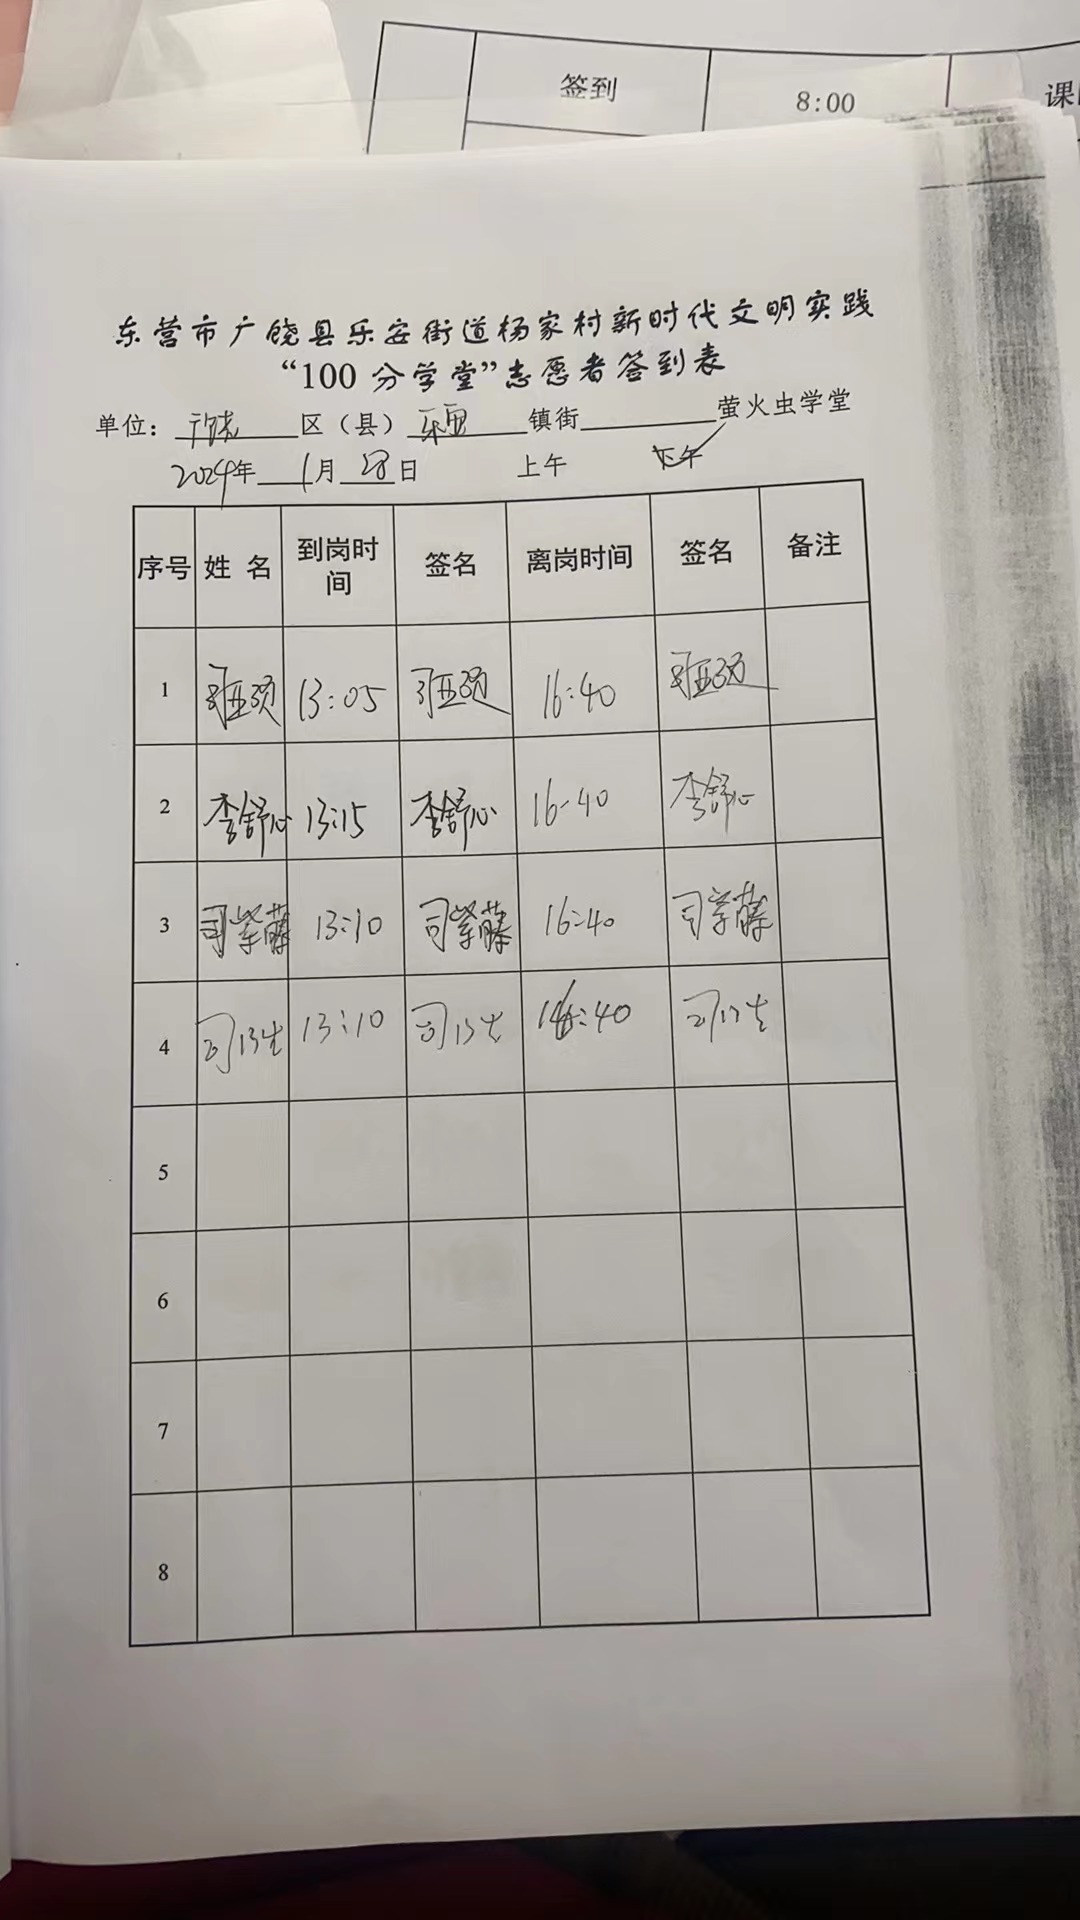 签到 8:00
东营市广饶县乐安街道杨家村新时代文明实践
“100 分学堂”志愿者签到表
单位：广饶区（县）乐安镇街 萤火虫学堂
2024年1月28日 上午 下午
序号 姓名 到岗时间 签名 离岗时间 签名 备注
1 13:05 16:40
2 李舒心 13:15 李舒心 16:40 李舒心
3 司紫藤 13:10 司紫藤 16:40 司紫藤
4 13:10 16:40
5
6
7
8